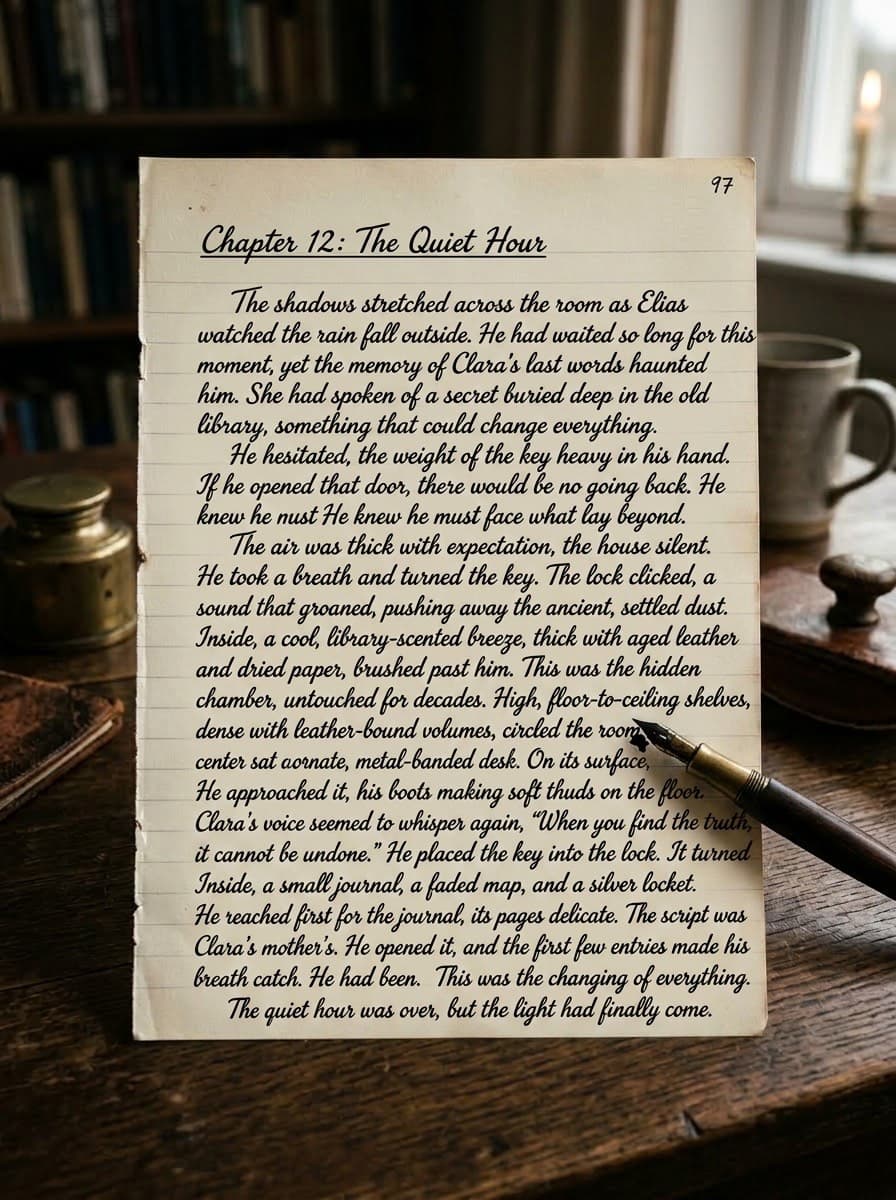 97
Chapter 12: The Quiet Hour
The shadows stretched across the room as Elias
watched the rain fall outside. He had waited so long for this
moment, yet the memory of Clara's last words haunted
him. She had spoken of a secret buried deep in the old
library, something that could change everything.
He hesitated, the weight of the key heavy in his hand.
If he opened that door, there would be no going back. He
knew he nust He knew he must face what lay beyond.
The air was thick with expectation, the house silent.
He took a breath and turned the key. The lock clicked, a
sound that groaned, pushing away the ancient, settled dust.
Inside, a cool, library-scented breeze, thick with aged leather
and dried paper, brushed past him. This was the hidden
chamber, untouched for decades. High, floor-to-ceiling shelves,
dense with leather-bound volumes, circled the room
center sat aornate, metal-banded desk. On its surface,
He approached it, his boots making soft thuds on the floor.
Clara's voice seemed to whisper again, “When you find the truth,
it cannot be undone.” He placed the key into the lock. It turned
Inside, a small journal, a faded map, and a silver locket.
He reached first for the journal, its pages delicate. The script was
Clara's mother's. He opened it, and the first few entries made his
breath catch. He had been. This was the changing of everything.
The quiet hour was over, but the light had finally come.